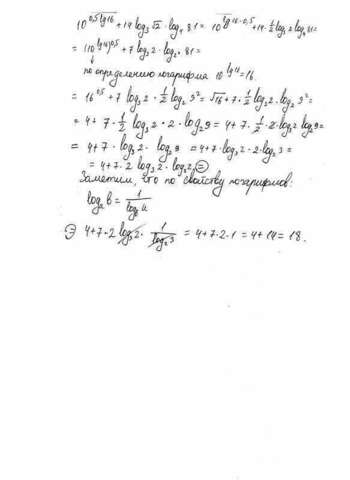 10^{0,5lg16} + 14 log₃√2 · log₄ 81 = 10^{lg16·0,5} + 14·½ log₃2 log₄81
= (10^{lg16})^{0,5} + 7 log₃ 2 · log₄ 81 =
↓
по определению логарифма 10^{lg16} = 16.
= 16^{0,5} + 7 log₃ 2 · ½ log₂ 9² = √16 + 7 · ½ log₃2 · log₂ 9² =
= 4 + 7 · ½ log₃ 2 · 2 · log₂ 9 = 4 + 7 · ½ · 2 · log₃2 log₂9 =
= 4 + 7 · log₃ 2 · log₂ 9 = 4 + 7 · log₃2 · 2 · log₂ 3 =
= 4 + 7 · 2 log₃2 · log₂ 3 =
Заметим, что по свойству логарифмов:
logₐ b = 1/log_b a
= 4 + 7 · 2 log₃2 · 1/log₃2 = 4 + 7 · 2 · 1 = 4 + 14 = 18.